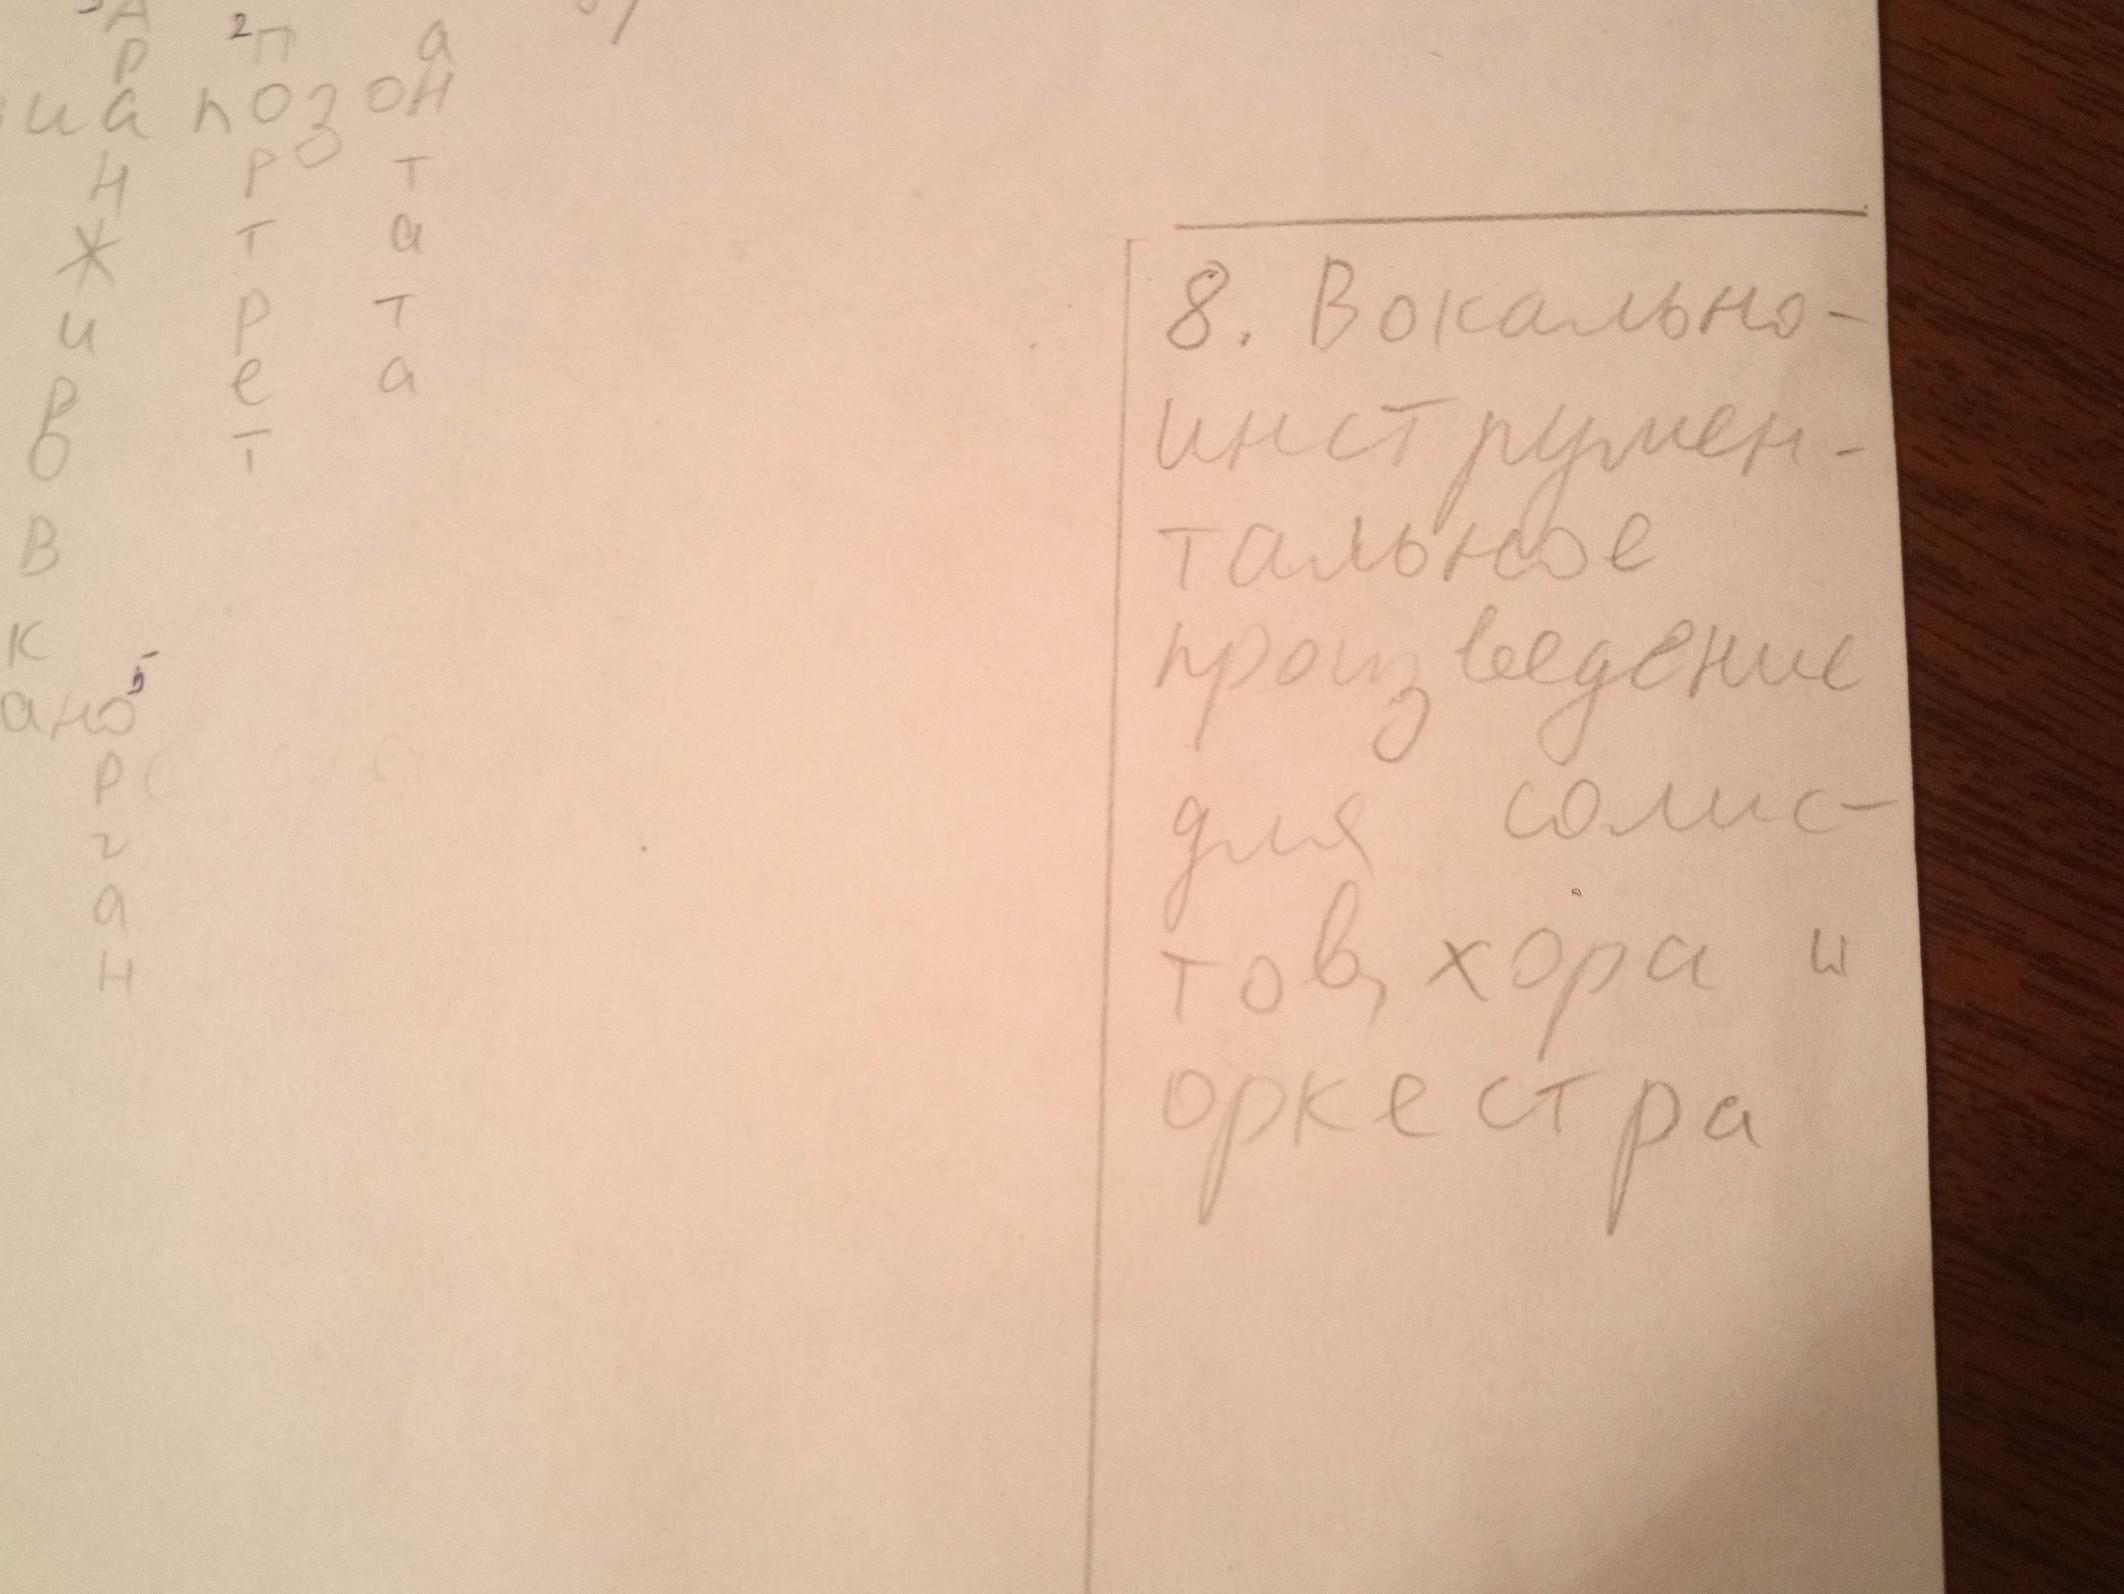 А
Р ²П а
иапозон
Н Р Т
Ж Т а
и Р Т
Р е а
о Т
В
К
ано⁵
Р
г
а
Н
8. Вокально-
инструмен-
тальное
произведение
для солис-
тов, хора и
оркестра